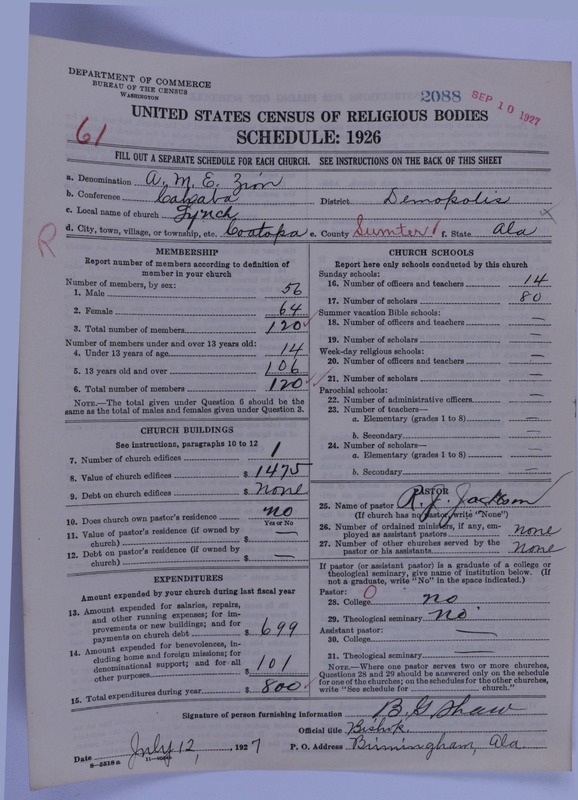 DEPARTMENT OF COMMERCE
BUREAU OF THE CENSUS
WASHINGTON
2088
SEP 10 1927
UNITED STATES CENSUS OF RELIGIOUS BODIES
SCHEDULE: 1926
61
FILL OUT A SEPARATE SCHEDULE FOR EACH CHURCH. SEE INSTRUCTIONS ON THE BACK OF THIS SHEET
a. Denomination A. M. E. Zion
b. Conference Cahaba District Demopolis
c. Local name of church Lynch
d. City, town, village, or township, etc. Coatopa e. County Sumter f. State Ala
R
MEMBERSHIP
Report number of members according to definition of
member in your church
Number of members, by sex:
1. Male 56
2. Female 64
3. Total number of members 120
Number of members under and over 13 years old:
4. Under 13 years of age 14
5. 13 years old and over 106
6. Total number of members 120
NOTE.—The total given under Question 6 should be
same as the total of males and females given under Question 3.
CHURCH BUILDINGS
See instructions, paragraphs 10 to 12
7. Number of church edifices 1
8. Value of church edifices $ 1475
9. Debt on church edifices $ None
10. Does church own pastor's residence no
Yes or No
11. Value of pastor's residence (if owned by
church) $ —
12. Debt on pastor's residence (if owned by
church) $ —
EXPENDITURES
Amount expended by your church during last fiscal year
13. Amount expended for salaries, repairs,
and other running expenses; for im-
provements or new buildings; and for
payments on church debt $ 699
14. Amount expended for benevolences, in-
cluding home and foreign missions; for
denominational support; and for all
other purposes $ 101
15. Total expenditures during year $ 800
CHURCH SCHOOLS
Report here only schools conducted by this church
Sunday schools:
16. Number of officers and teachers 14
17. Number of scholars 80
Summer vacation Bible schools:
18. Number of officers and teachers —
19. Number of scholars —
Week-day religious schools:
20. Number of officers and teachers —
21. Number of scholars —
Parochial schools:
22. Number of administrative officers —
23. Number of teachers—
a. Elementary (grades 1 to 8) —
b. Secondary —
24. Number of scholars—
a. Elementary (grades 1 to 8) —
b. Secondary —
PASTOR
25. Name of pastor R. J. Jackson
(If church has no pastor, write "None")
26. Number of ordained ministers, if any, em-
ployed as assistant pastors none
27. Number of other churches served by the
pastor or his assistants None
If pastor (or assistant pastor) is a graduate of a college or
theological seminary, give name of institution below. (If
not a graduate, write "No" in the space indicated.)
Pastor: 0
28. College no
29. Theological seminary no
Assistant pastor:
30. College —
31. Theological seminary —
NOTE.—Where one pastor serves two or more churches,
Questions 28 and 29 should be answered only on the schedule
for one of the churches; on the schedules for the other churches,
write "See schedule for church."
Signature of person furnishing information B. G Shaw
Official title Bishop.
Date July 12, 1927 P. O. Address Birmingham, Ala
8-5518a